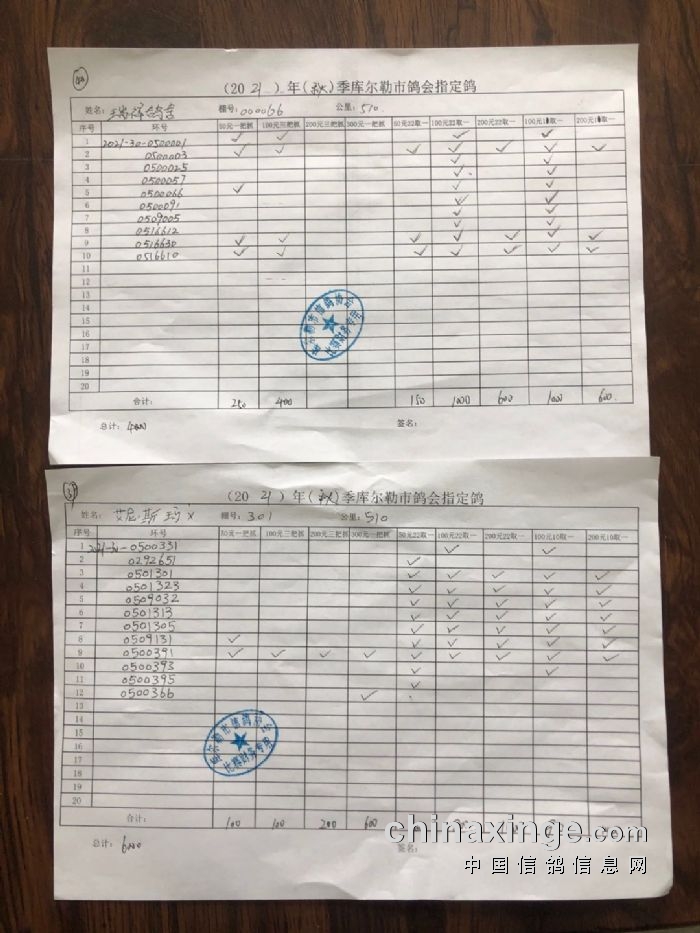 (2021)年(秋)季库尔勒市鸽会指定鸽
姓名: 瑞祥鸽舍 棚号: 000066 公里: 510
序号 环号 50元一把抓 100元三把抓 200元三把抓 300元一把抓 50元22取一 100元22取一 200元22取一 100元10取一 200元10取一
1 2021-30-0500001 ✓ ✓ ✓ ✓
2 0500003 ✓ ✓ ✓ ✓ ✓ ✓ ✓
3 0500025 ✓ ✓
4 0500057 ✓ ✓
5 0500066 ✓ ✓ ✓
6 0500091 ✓ ✓
7 0509005 ✓ ✓
8 0516612 ✓ ✓
9 0516630 ✓ ✓ ✓ ✓ ✓ ✓ ✓
10 0516610 ✓ ✓ ✓ ✓ ✓ ✓ ✓
11
12
13
14
15
16
17
18
19
20
库尔勒市信鸽协会
比赛财务专用
合计: 250 400 150 1000 600 1000 600
总计: 4000 签名:
(2021)年(秋)季库尔勒市鸽会指定鸽
姓名: 艾尼·斯 棚号: 301 公里: 510
序号 环号 50元一把抓 100元三把抓 200元三把抓 300元一把抓 50元22取一 100元22取一 200元22取一 100元10取一 200元10取一
1 2021-30-0500331 ✓ ✓
2 0292651 ✓
3 0501301 ✓ ✓ ✓ ✓ ✓
4 0501323 ✓ ✓ ✓ ✓ ✓
5 0509032 ✓ ✓ ✓ ✓ ✓
6 0501313 ✓ ✓ ✓ ✓ ✓
7 0501305 ✓ ✓ ✓ ✓ ✓
8 0509131 ✓ ✓ ✓ ✓ ✓ ✓
9 0500391 ✓ ✓ ✓ ✓ ✓ ✓ ✓ ✓ ✓
10 0500393 ✓ ✓
11 0500395 ✓
12 0500366 ✓
13
14
15
16
17
18
19
20
库尔勒市信鸽协会
比赛财务专用
合计: 100 100 200 600
总计: 6000 签名:
chinaxinge.com
中国信鸽信息网